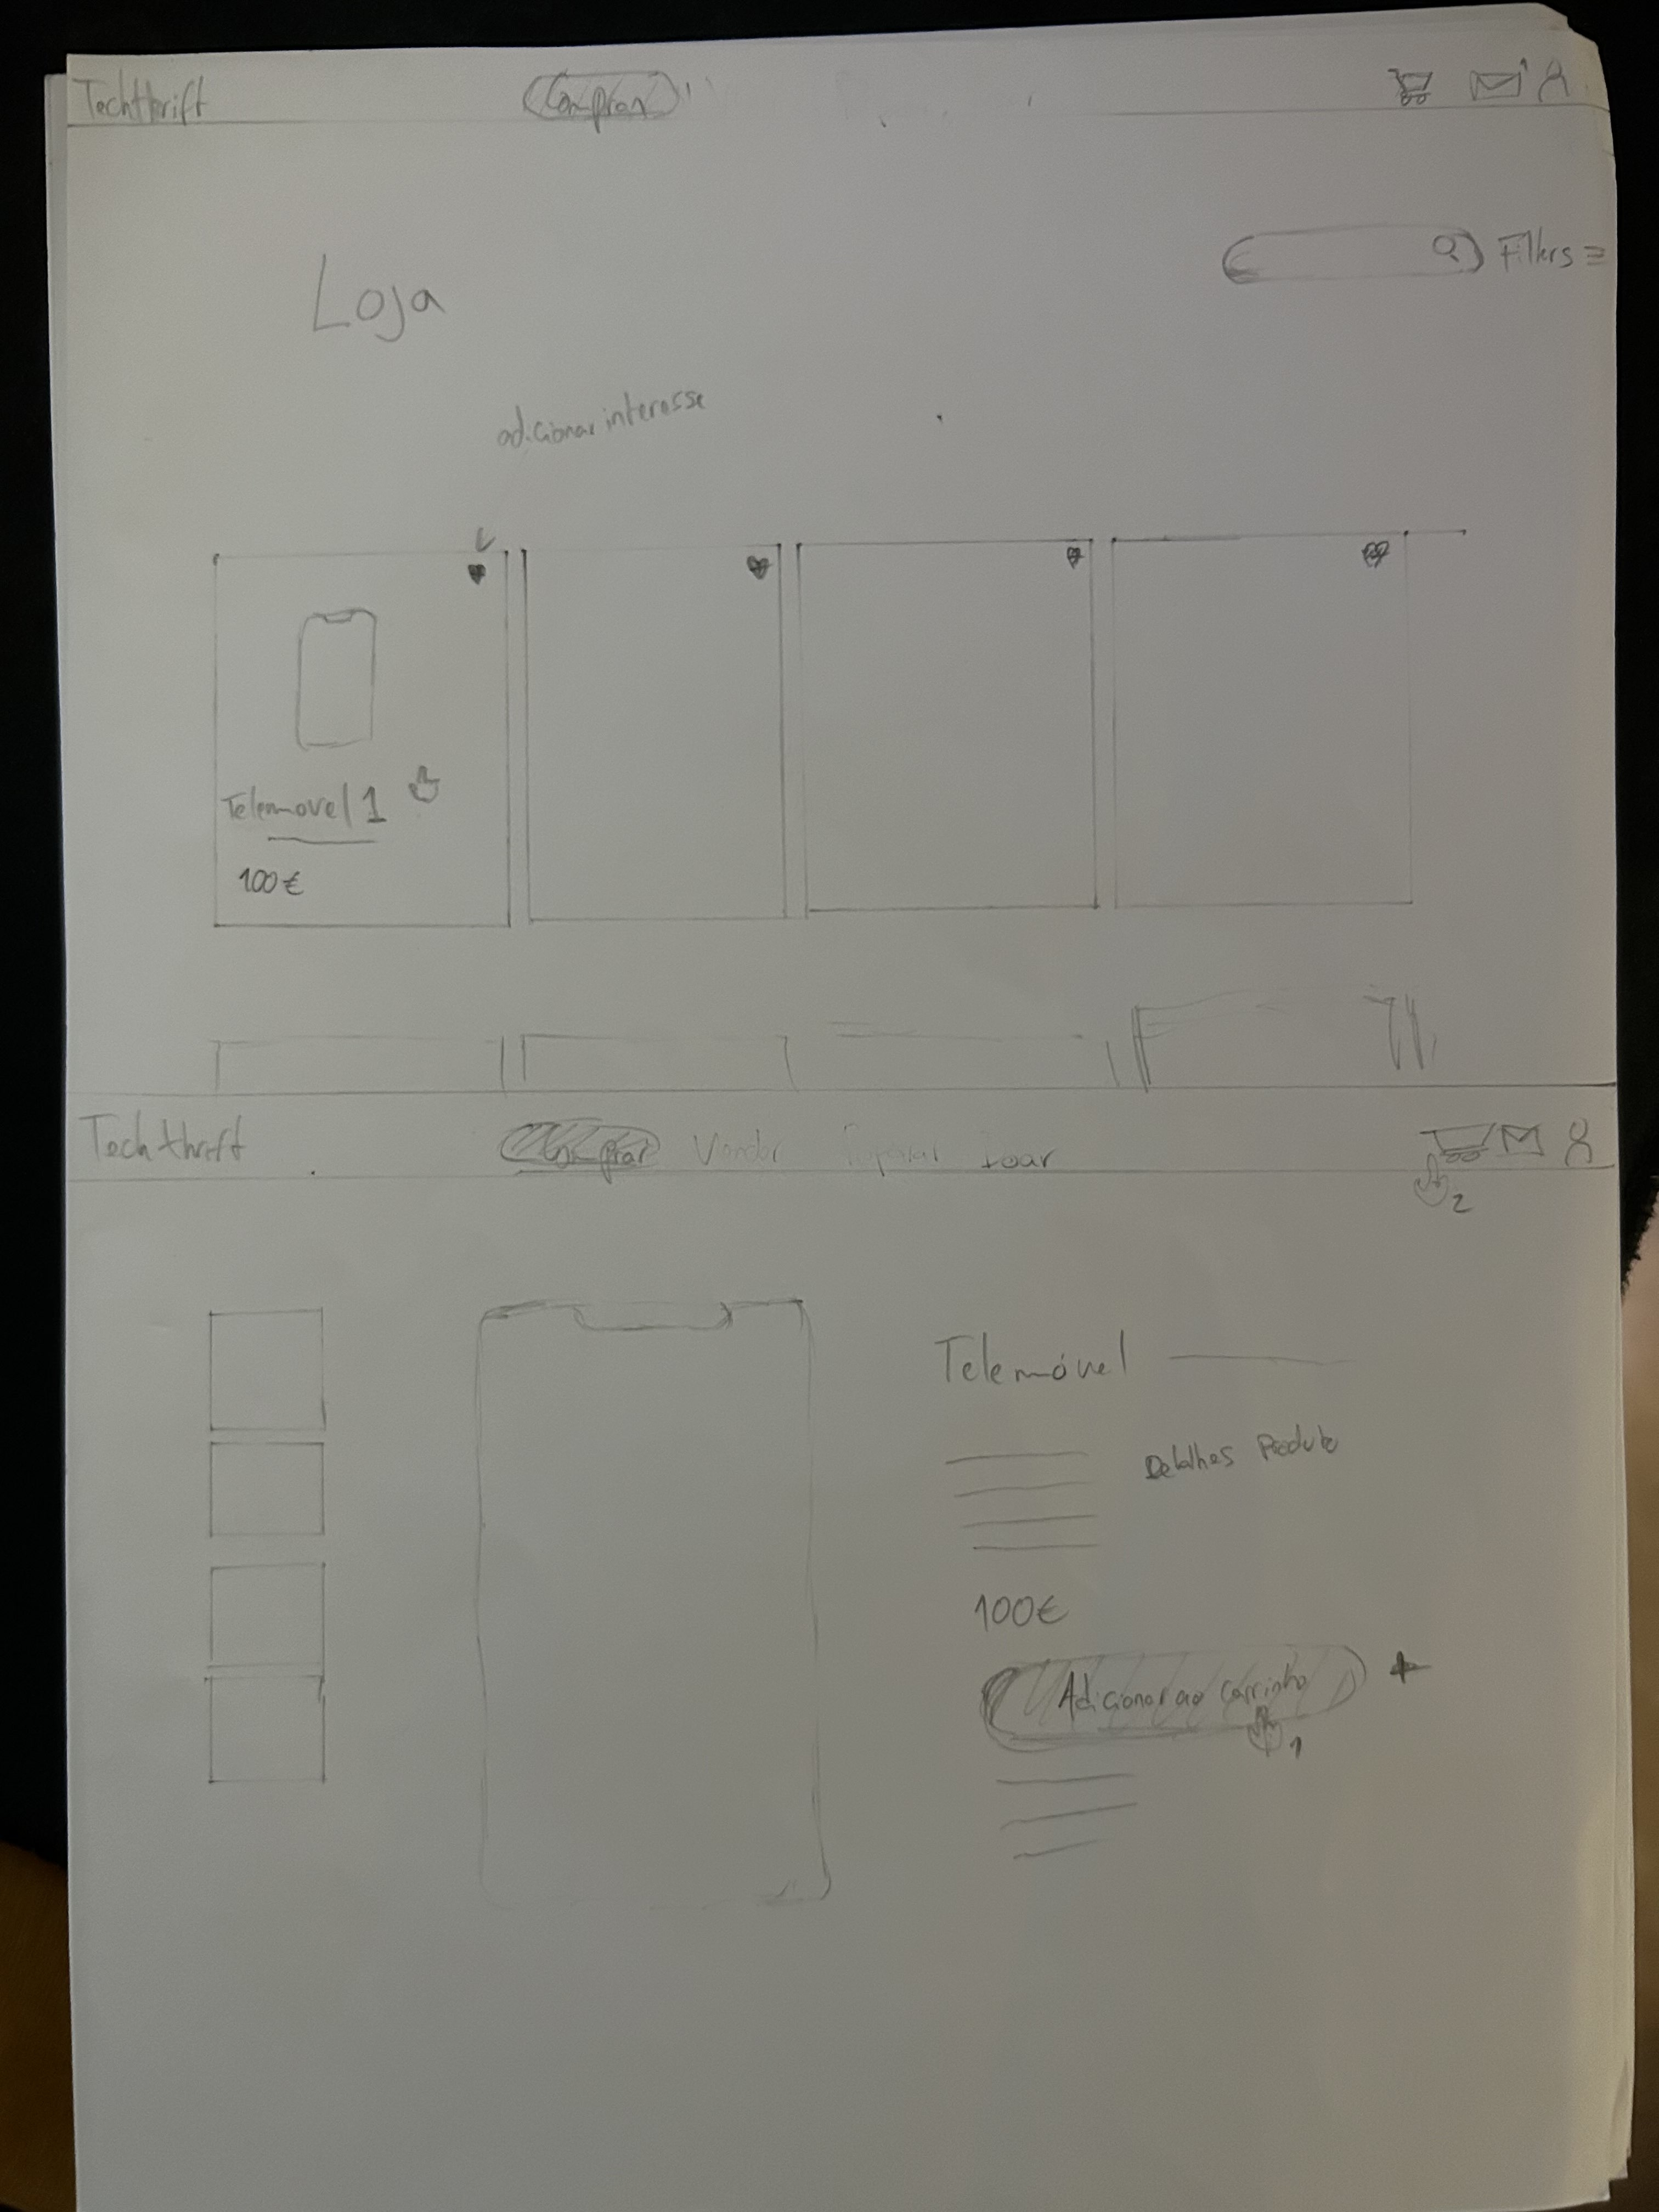 Techthrift
Comprar
Loja
Filters
adicionar interesse
Telemovel 1
100€
Tech thrift
Comprar Vender Doar
2
Telemóvel
Detalhes Produto
100€
Adicionar ao carrinho
1